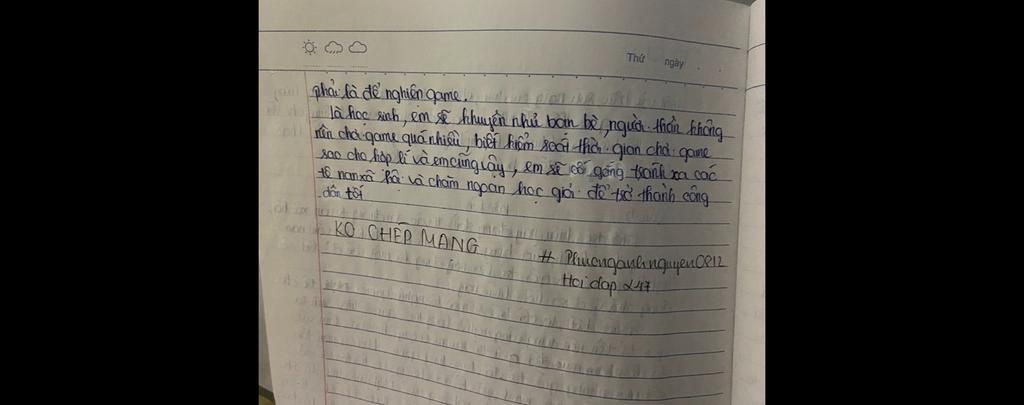 Thứ ngày
phải là để nghiện game.
là học sinh, em sẽ khuyên nhủ bạn bè, người thân không
nên chơi game quá nhiều, biết kiểm soát thời gian chơi game
sao cho hợp lí và em cũng vậy, em sẽ cố gắng tránh xa các
tệ nạn xã hội và chăm ngoan học giỏi để trở thành công
dân tốt
KO CHÉP MẠNG
# Phuonganhnguyen0812
Hoidap 247